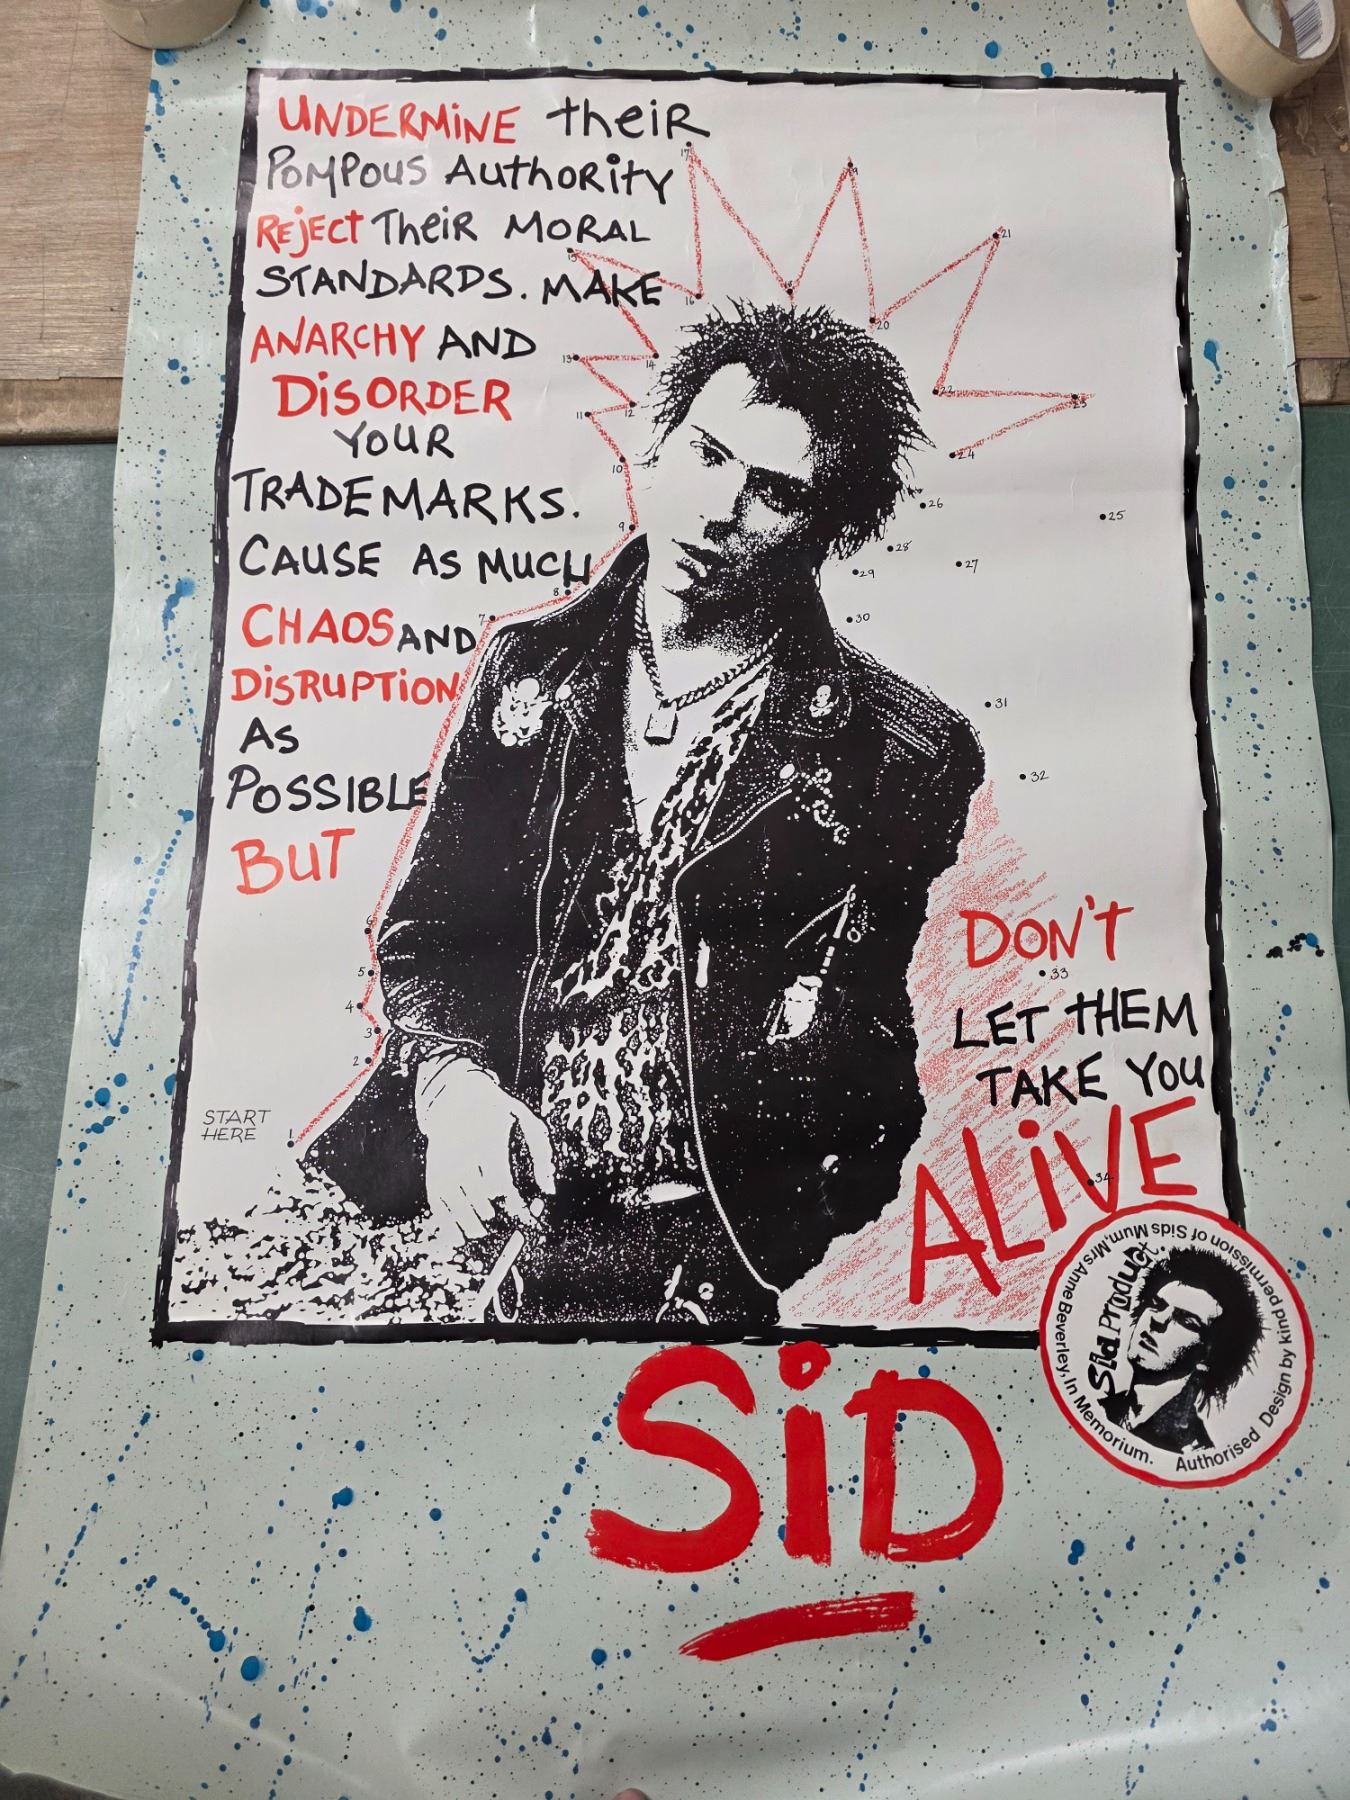 UNDERMINE theiR
POMPOUS AuthoRity
ReJect TheiR MORAL
STANDARDS. MAKE
ANARCHY AND
DiSORDER
YOUR
TRADEMARKS.
CAUSE AS MUCH
CHAOS AND
DiSRUPTiON
AS
POSSIBLE
BUT
DON'T
LET THEM
TAKE YOU
ALiVE
START
HERE
1
2
3
4
5
6
7
8
9
10
11
12
13
14
15
16
17
18
19
20
21
22
23
24
25
26
27
28
29
30
31
32
33
34
SiD
Sid Product
Authorised Design by kind permission of Sids Mum, Mrs Anne Beverley, In Memorium.